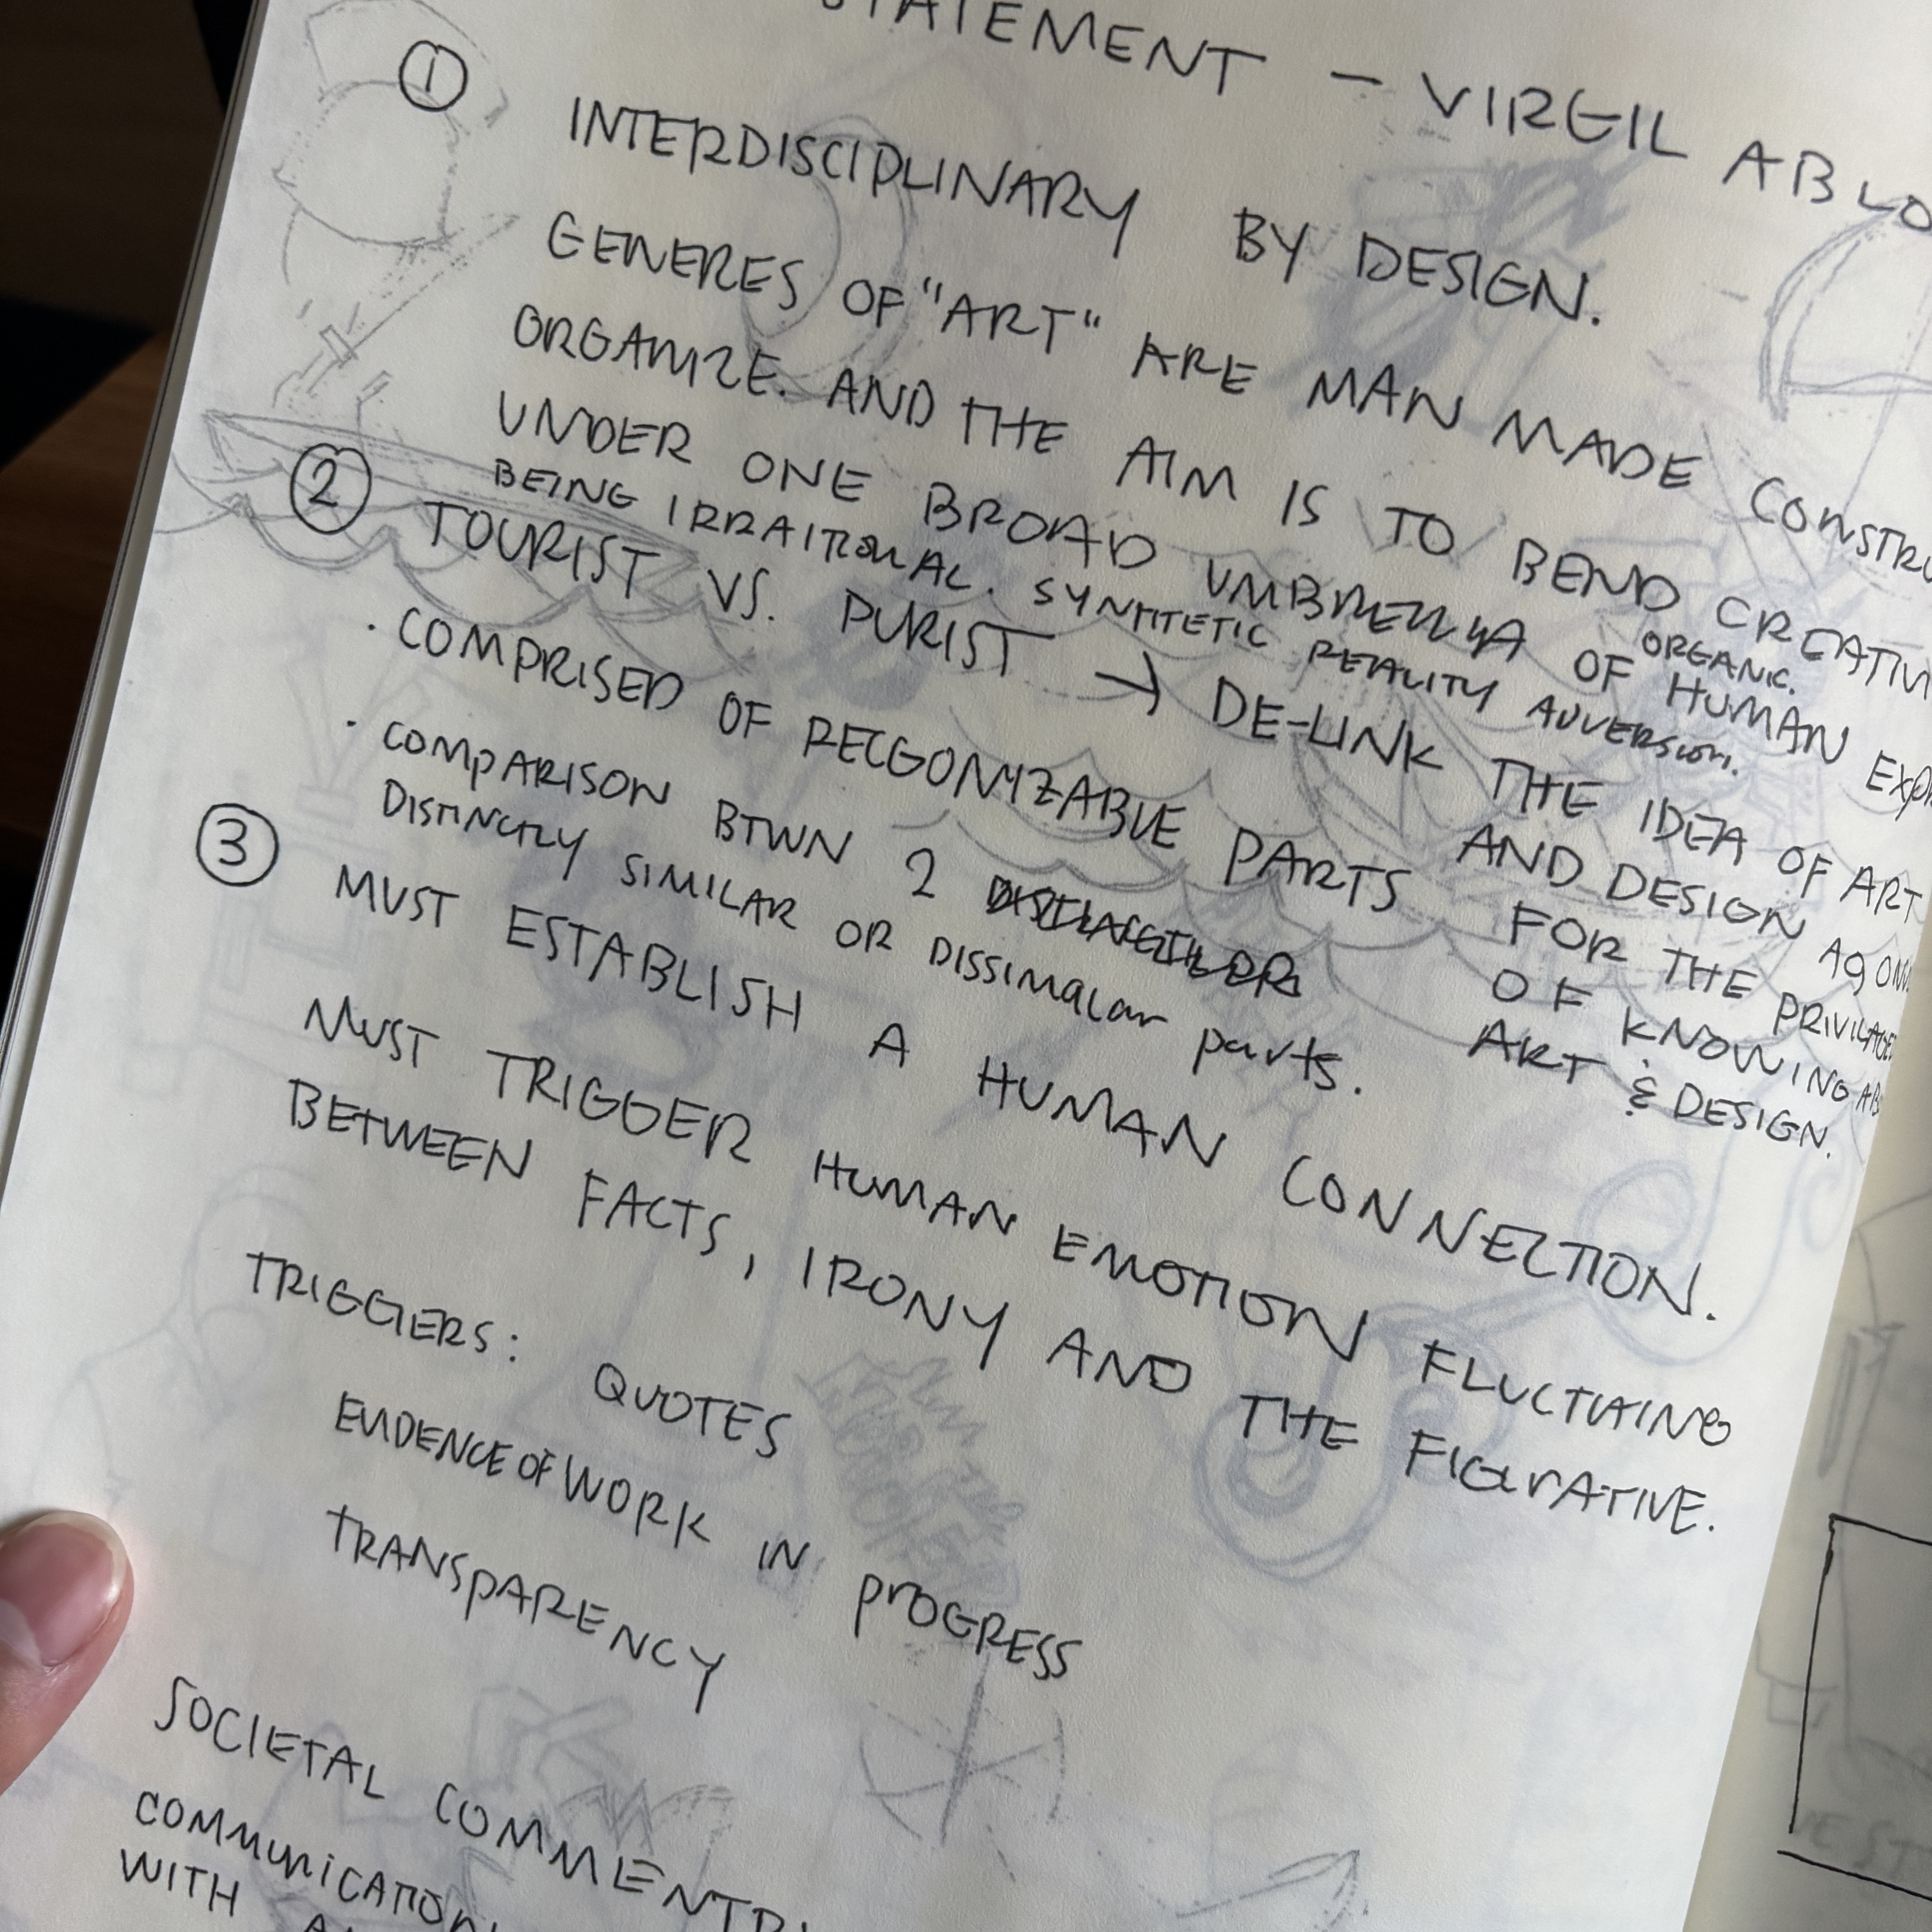 STATEMENT - VIRGIL ABLO
① INTERDISCIPLINARY BY DESIGN.
GENERES OF "ART" ARE MAN MADE CONSTRU
ORGANIZE. AND THE AIM IS TO BEND CREATIV
UNDER ONE BROAD UMBRELLA OF HUMAN EXP
BEING IRRAITIONAL. SYNTITETIC REALITY ADVERSION.
ORGANIC.
② TOURIST VS. PURIST → DE-LINK THE IDEA OF ART
AND DESIGN
FOR THE PRIVILAGE
OF KNOWING AB
ART & DESIGN.
· COMPRISED OF RECGONYZABLE PARTS
· COMPARISON BTWN 2
DISTINCTLY SIMILAR OR DISSIMALAR PARTS.
③ MUST ESTABLISH A HUMAN CONNECTION.
MUST TRIGGER HUMAN EMOTION FLUCTUAING
BETWEEN FACTS, IRONY AND THE FIGURATIVE.
TRIGGERS: QUOTES
EVIDENCE OF WORK IN PROGRESS
TRANSPARENCY
SOCIETAL COMMENTR
COMMUNICATION
WITH